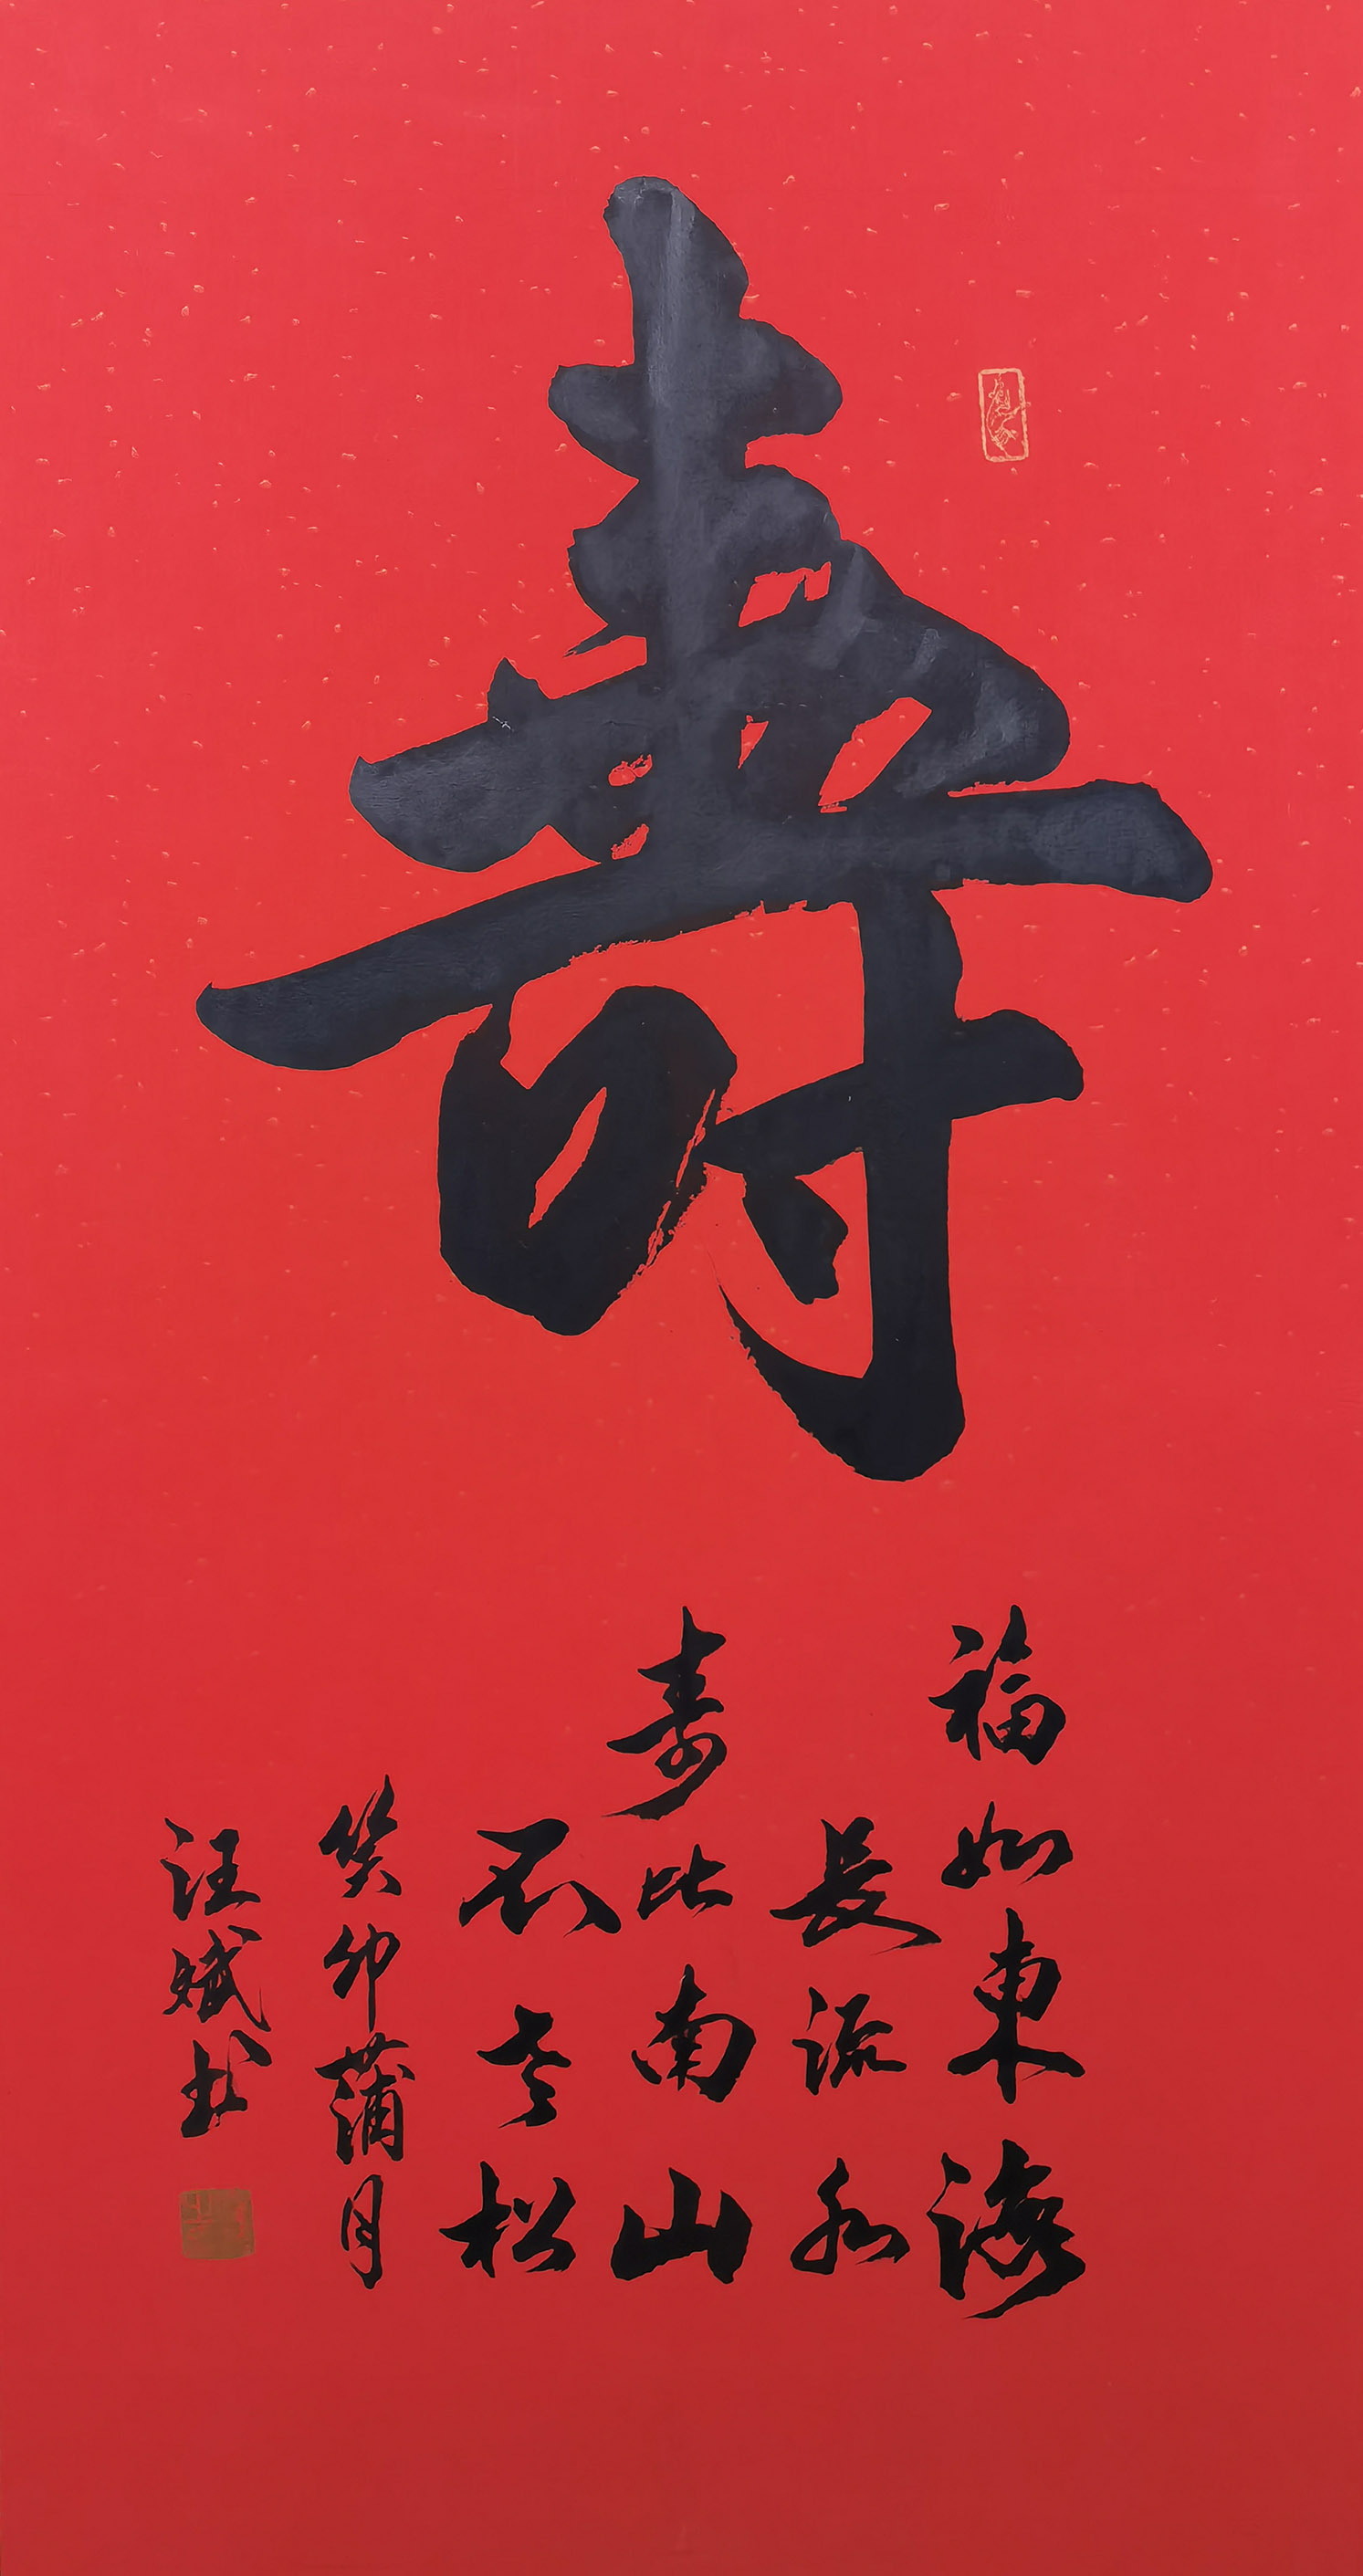 壽
福如東海
長流水
壽比南山
不老松
癸卯蒲月
汪斌书